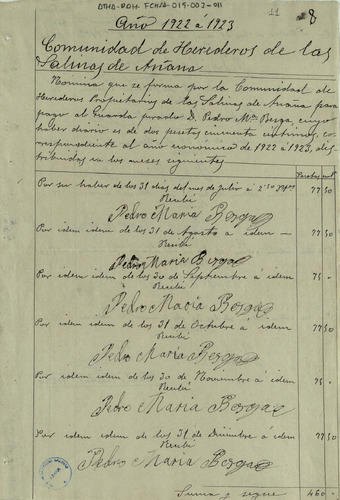 ATHA-DAH-FCHSA-019-002-011
11
8
Año 1922 á 1923
Comunidad de Herederos de las
Salinas de Añana
Nómina que se forma por la Comunidad de
Herederos Propietarios de las Salinas de Añana para
pago al Guarda jurado D. Pedro Mª Berga, cuyo
haber diario es de dos pesetas cincuenta céntimos, co-
rrespondiente al año económico de 1922 á 1923, dis-
tribuidas en los meses siguientes
Pesetas
Por su haber de los 31 días del mes de Julio á 2'50 77 50
Recibí
Pedro Maria Berga
Por idem idem de los 31 de Agosto á idem — 77 50
Recibí
Pedro Maria Berga
Por idem idem de los 30 de Septiembre á idem 75 -
Recibí
Pedro Maria Berga
Por idem idem de los 31 de Octubre á idem 77 50
Recibí
Pedro Maria Berga
Por idem idem de los 30 de Noviembre á idem 75 -
Recibí
Pedro Maria Berga
Por idem idem de los 31 de Diciembre á idem 77 50
Recibí
Pedro Maria Berga
Suma y sigue 460 -